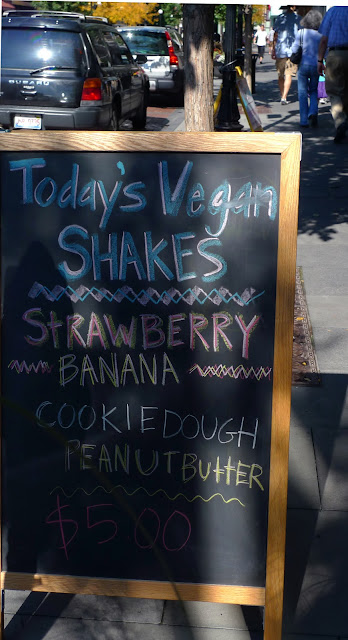 Today's Vegan
SHAKES
STRAWBERRY
BANANA
COOKIEDOUGH
PEANUTBUTTER
$5.00